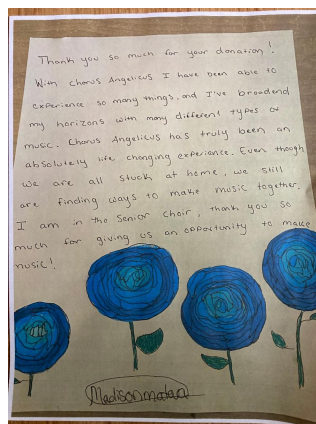 Thank you so much for your donation!
With Chorus Angelicus I have been able to
experience so many things, and I've broadend
my horizons with many different types of
music. Chorus Angelicus has truly been an
absolutely life changing experience. Even though
we are all stuck at home, we still
are finding ways to make music together.
I am in the Senior Choir, thank you so
much for giving us an opportunity to make
music!
Madison